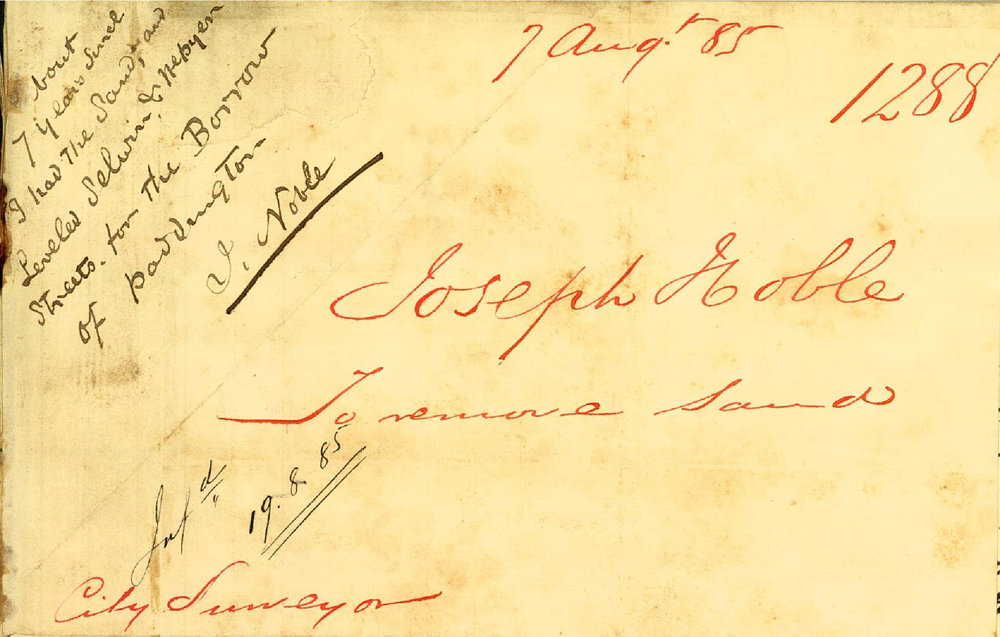 bout
7 years since
I had the Sand, and
Leveled Selwin, & Nepyen
Streets. for the Borrow
of paddington
J. Noble
7 Augt 85
1288
Joseph Noble
To remove sand
Infd
19.8.85
City Surveyor